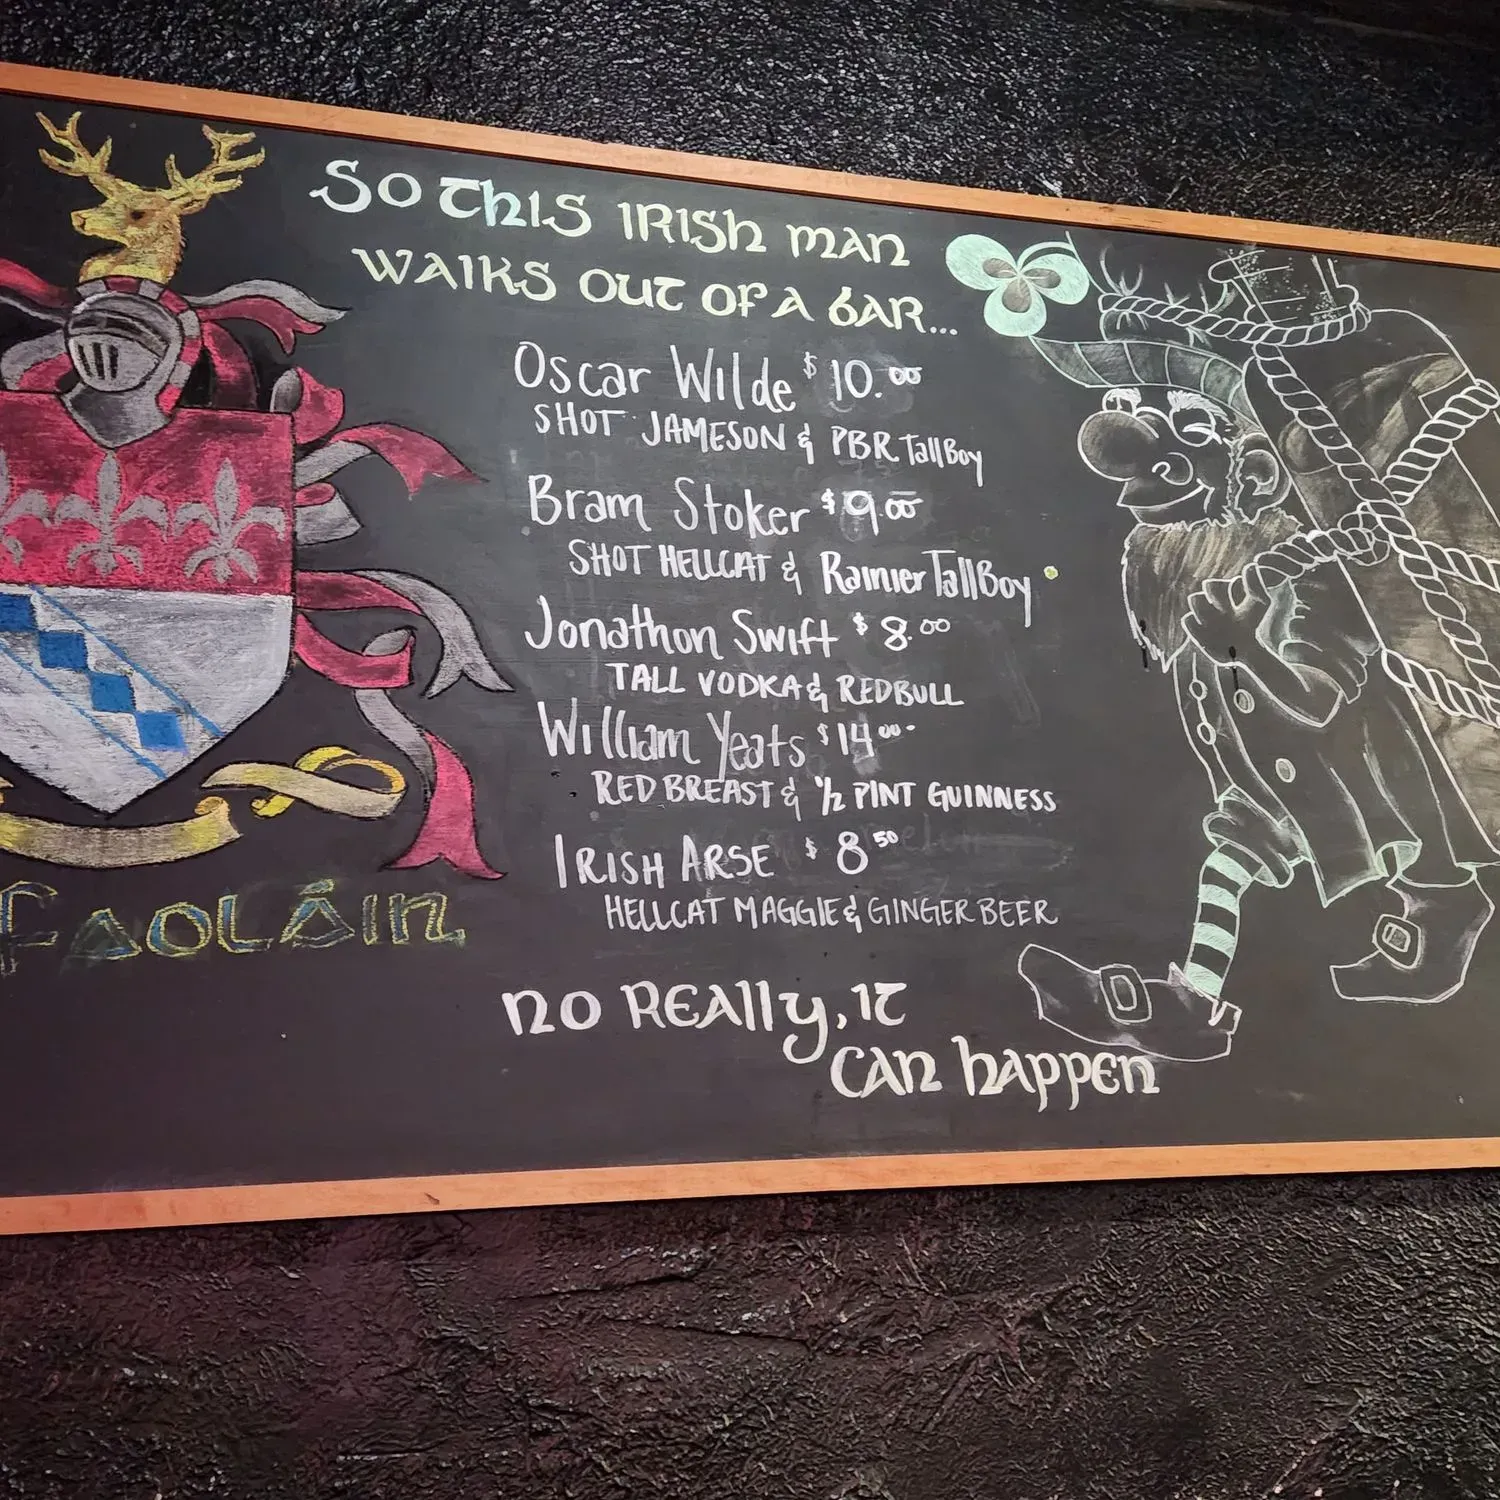 So this Irish man
walks out of a bar...
Oscar Wilde $10.00
SHOT JAMESON & PBR TallBoy
Bram Stoker $9.00
SHOT HELLCAT & Rainier TallBoy
Jonathon Swift $8.00
TALL VODKA & REDBULL
William Yeats $14.00
RED BREAST & 1/2 PINT GUINNESS
IRISH ARSE $8.50
HELLCAT MAGGIE & GINGER BEER
faoláin
No Really, it
can happen